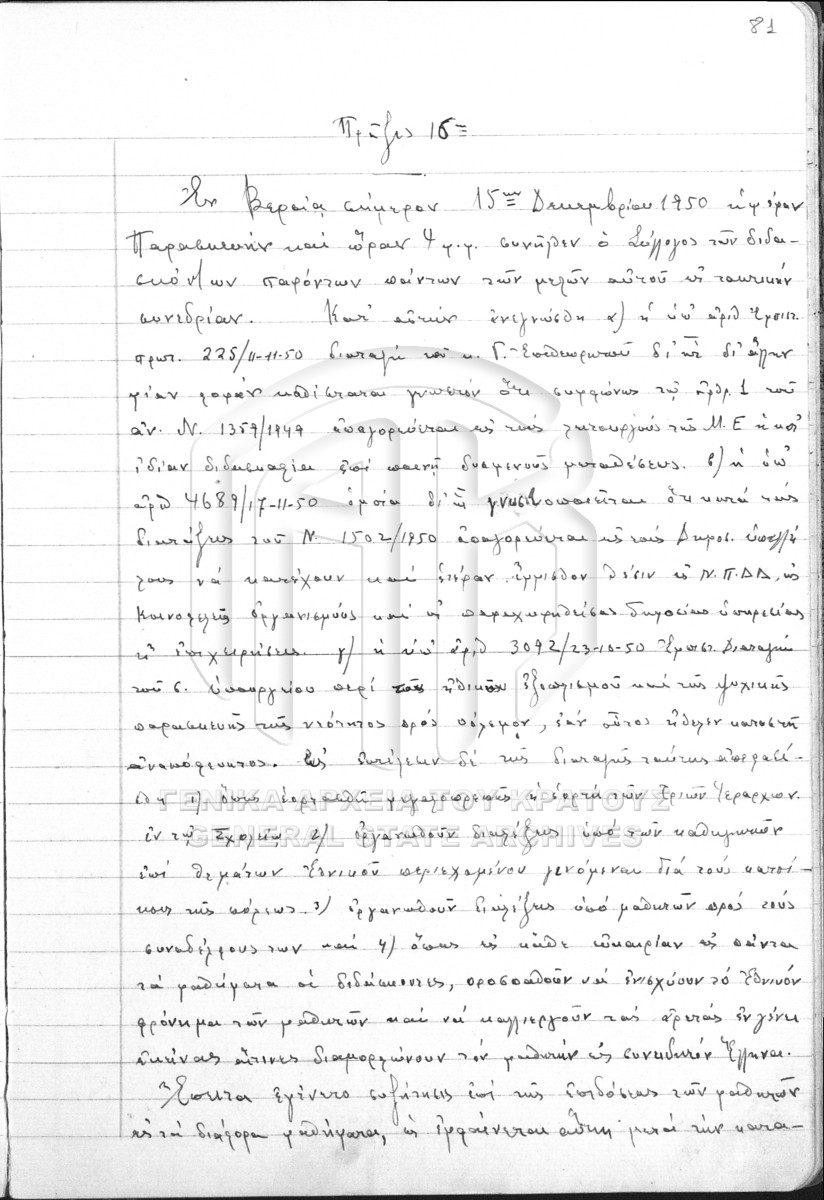 81
Πρᾶξις 16η
Ἐν Βεροίᾳ σήμερον 15ην Δεκεμβρίου 1950 ἡμέραν
Παρασκευήν καί ὥραν 4 μ.μ. συνῆλθεν ὁ Σύλλογος τῶν διδα-
σκόντων παρόντων πάντων τῶν μελῶν αὐτοῦ εἰς τακτικήν
συνεδρίαν. Κατ' αὐτήν ἀνεγνώσθη α) ἡ ὑπ' ἀριθ Ἐμπιστ.
πρωτ. 225/11-11-50 διαταγή τοῦ κ. Γ. Ἐπιθεωρητοῦ δι' ἧς δι' ἄλλην
μίαν φοράν καθίσταται γνωστόν ὅτι συμφώνως τῷ ἄρθρ. 1 τοῦ
ἀν. Ν. 1359/1949 ἀπαγορεύεται εἰς τούς λειτουργούς τῆς Μ.Ε ἡ κατ'
ἰδίαν διδασκαλία ἐπί ποινῇ δυσμενοῦς μεταθέσεως. β) ἡ ὑπ'
ἀριθ 4689/17-11-50 ὁμοία δι' ἧς γνωστοποιεῖται ὅτι κατά τάς
διατάξεις τοῦ Ν. 1502/1950 ἀπαγορεύεται εἰς τούς Δημοσ. ὑπαλλή
λους νά κατέχουν καί ἑτέραν ἔμμισθον θέσιν εἰς Ν.Π.Δ.Δ, εἰς
Κοινωφελεῖς ὀργανισμούς καί εἰς παραχωρηθείσας δημοσίας ὑπηρεσίας
ἤ ἐπιχειρήσεις. γ) ἡ ὑπ' ἀριθ 3092/23-10-50 Ἐμπιστ. Διαταγή
τοῦ σ. ὑπουργείου περί ἠθικοῦ ἐξοπλισμοῦ καί τῆς ψυχικῆς
παρασκευῆς τῆς νεότητος πρός πόλεμον, ἐάν οὗτος ἤθελεν καταστῆ
ἀναπόφευκτος. Εἰς ἐκτέλεσιν δέ τῆς διαταγῆς ταύτης ἀπεφασί-
σθη 1) ὅπως ἑορτασθῇ μεγαλοπρεπῶς ἡ ἑορτή τῶν Τριῶν Ἱεραρχῶν.
ΓΕΝΙΚΑ ΑΡΧΕΙΑ ΤΟΥ ΚΡΑΤΟΥΣ
ἐν τῷ Σχολείῳ 2) ὀργανωθοῦν διαλέξεις ὑπό τῶν καθηγητῶν
GENERAL STATE ARCHIVES
ἐπί θεμάτων Ἐθνικοῦ περιεχομένου γενόμεναι διά τούς κατοί-
κους τῆς πόλεως. 3) ὀργανωθοῦν διαλέξεις ὑπό μαθητῶν πρός τούς
συναδέλφους των καί 4) ὅπως εἰς κάθε εὐκαιρίαν εἰς πάντα
τά μαθήματα οἱ διδάσκοντες, προσπαθοῦν νά ἐνισχύουν τό Ἐθνικόν
φρόνημα τῶν μαθητῶν καί νά καλλιεργοῦν τάς ἀρετάς ἐν γένει
ἐκείνας αἵτινες διαμορφώνουν τόν μαθητήν εἰς συνειδητόν Ἕλληνα.
Ἔπειτα ἐγένετο συζήτησις ἐπί τῆς ἐπιδόσεως τῶν μαθητῶν
εἰς τά διάφορα μαθήματα, ὡς ἐμφαίνεται αὕτη μετά τήν κατα-